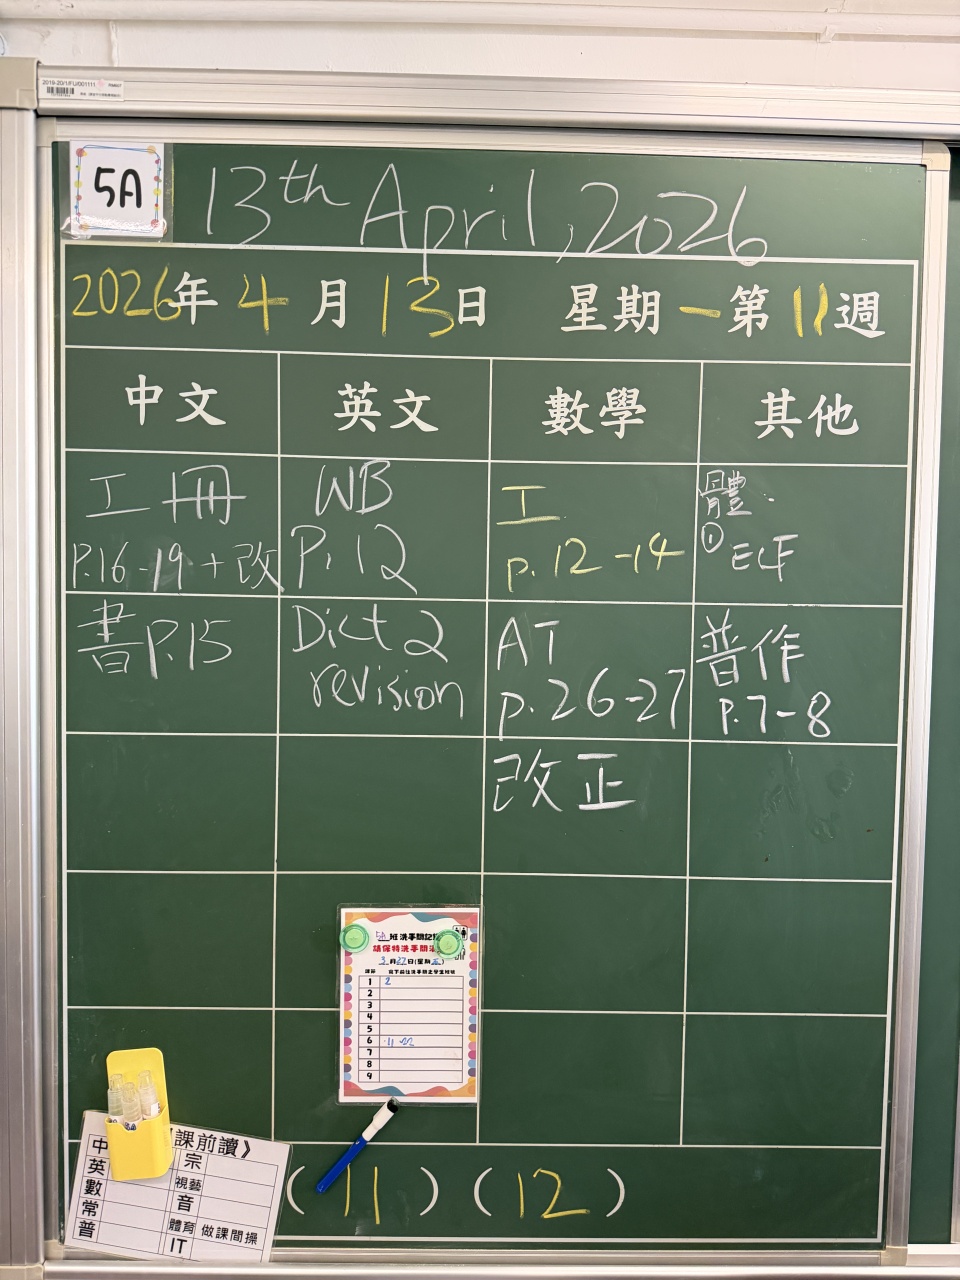 2019-20/1/FU/001111
5A
13th April, 2026
2026年 4 月 13日 星期一第11週
中文 英文 數學 其他
工冊
P.16-19+改
WB
P.12
工
p.12-14
體.
① ECF
書P.15
Dict 2
revision
AT
p.26-27
普作
P.7-8
改正
5A 班洗手間記
請保持洗手間
3 月 27 日(星期五)
1 2
2
3
4
5
6 11 22
7
8
9
課前讀》
中 宗
英 視藝
數 音
常 體育 做課間操
普 IT
(11)(12)